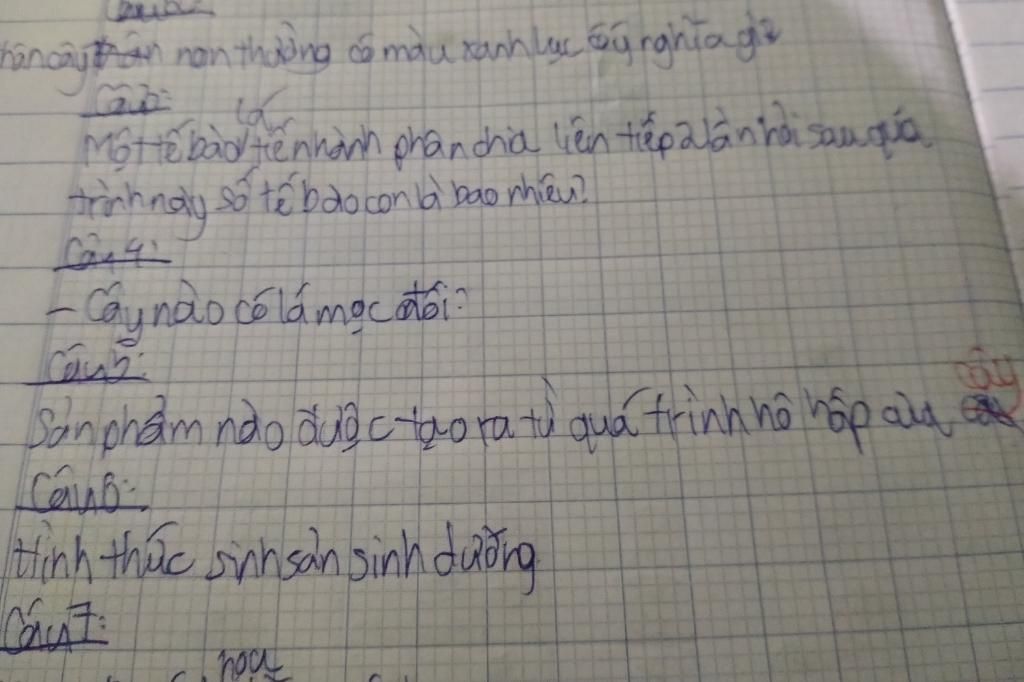 thân cây non thường có màu xanh lục có ý nghĩa gì?
Câu 3:
Một tế bào lá tiến hành phân chia liên tiếp 2 lần hỏi sau quá
trình này số tế bào con là bao nhiêu?
Câu 4:
- Cây nào có lá mọc đối?
Câu 5:
Sản phẩm nào được tạo ra từ quá trình hô hấp của cây
Câu 6:
Hình thức sinh sản sinh dưỡng
Câu 7:
hoa